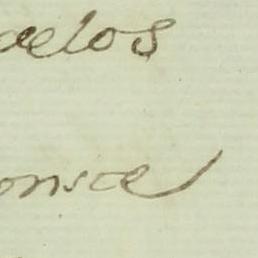 delos
onice